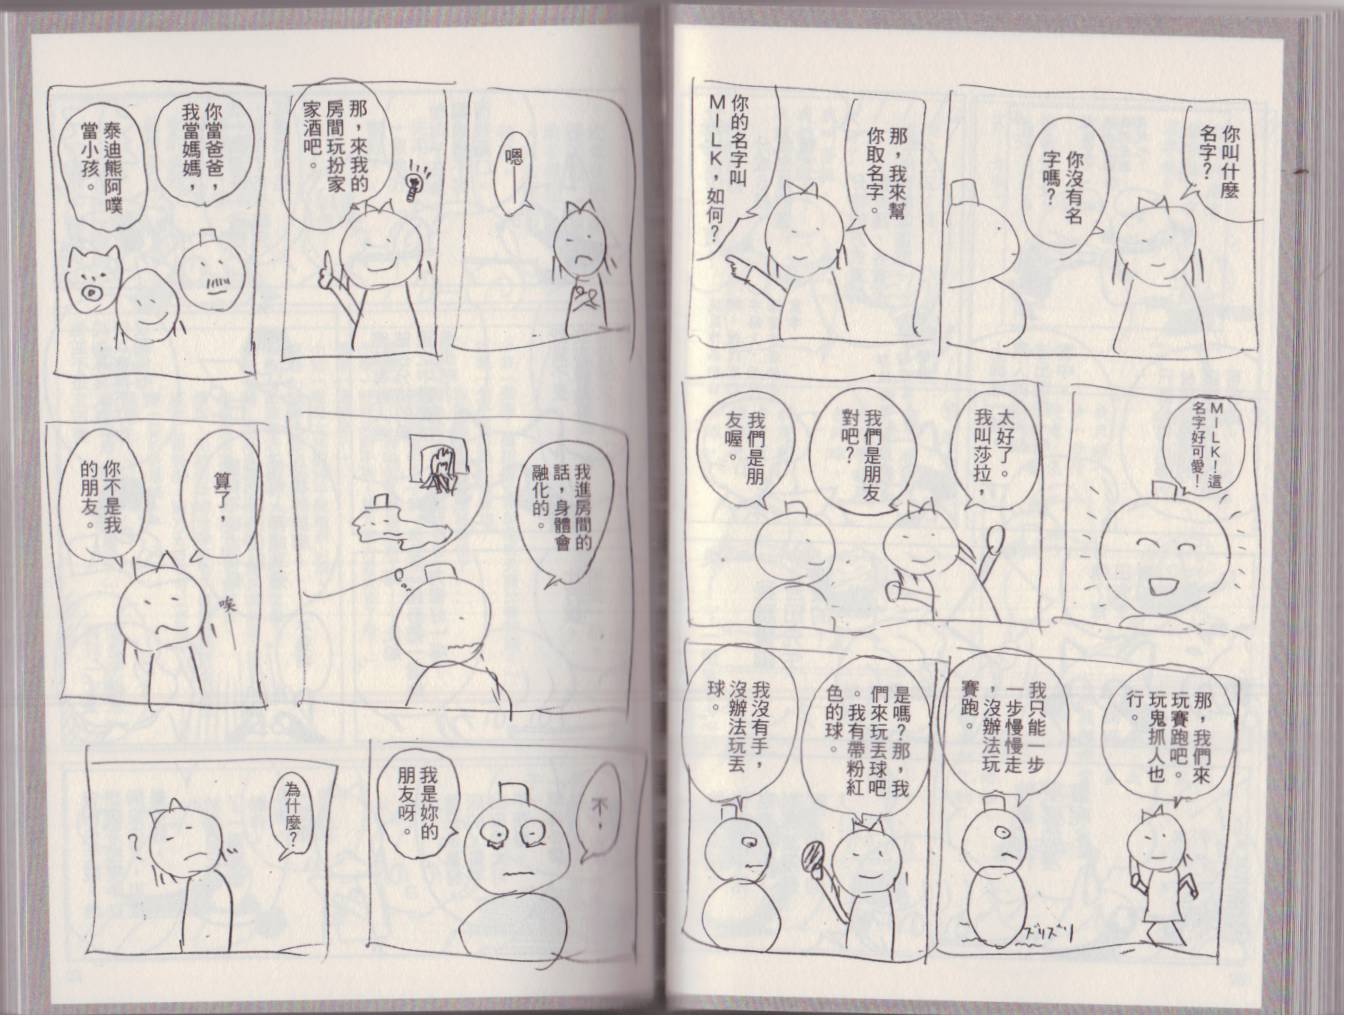 你叫什麼
名字?
你沒有名
字嗎?
那,我來幫
你取名字。
你的名字叫
MILK,如何?
MILK!這
名字好可愛!
太好了。
我叫莎拉,
我們是朋友
對吧?
我們是朋
友喔。
那,我們來
玩賽跑吧。
玩鬼抓人也
行。
我只能一步
一步慢慢走
,沒辦法玩
賽跑。
ズリズリ
是嗎?那,我
們來玩丟球吧
。我有帶粉紅
色的球。
我沒有手,
沒辦法玩丟
球。
嗯——
那,來我的
房間玩扮家
家酒吧。
你當爸爸,
我當媽媽,
泰迪熊阿噗
當小孩。
我進房間的
話,身體會
融化的。
算了,
你不是我
的朋友。
唉
不,
我是妳的
朋友呀。
為什麼?
?